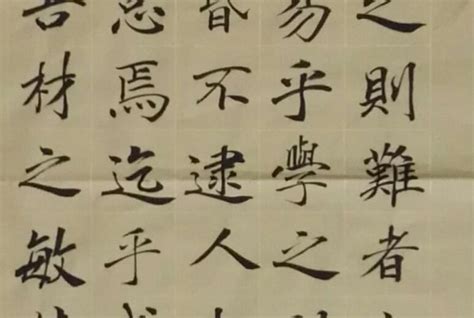 之則難者
易乎學之
昏不逮人
怠焉迄乎
吾材之敏